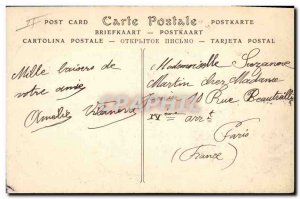 POST CARD Carte Postale POSTKARTE
BRIEFKAART — POSTKAART
CARTOLINA POSTALE — ОТКРЫТОЕ ПИСЬМО — TARJETA POSTAL
Mille baisers de
votre amie
Amélie
Mademoiselle Suzanne
Martin chez Madame
10 Rue Beautreillis
IVème arrt
Paris
(France)